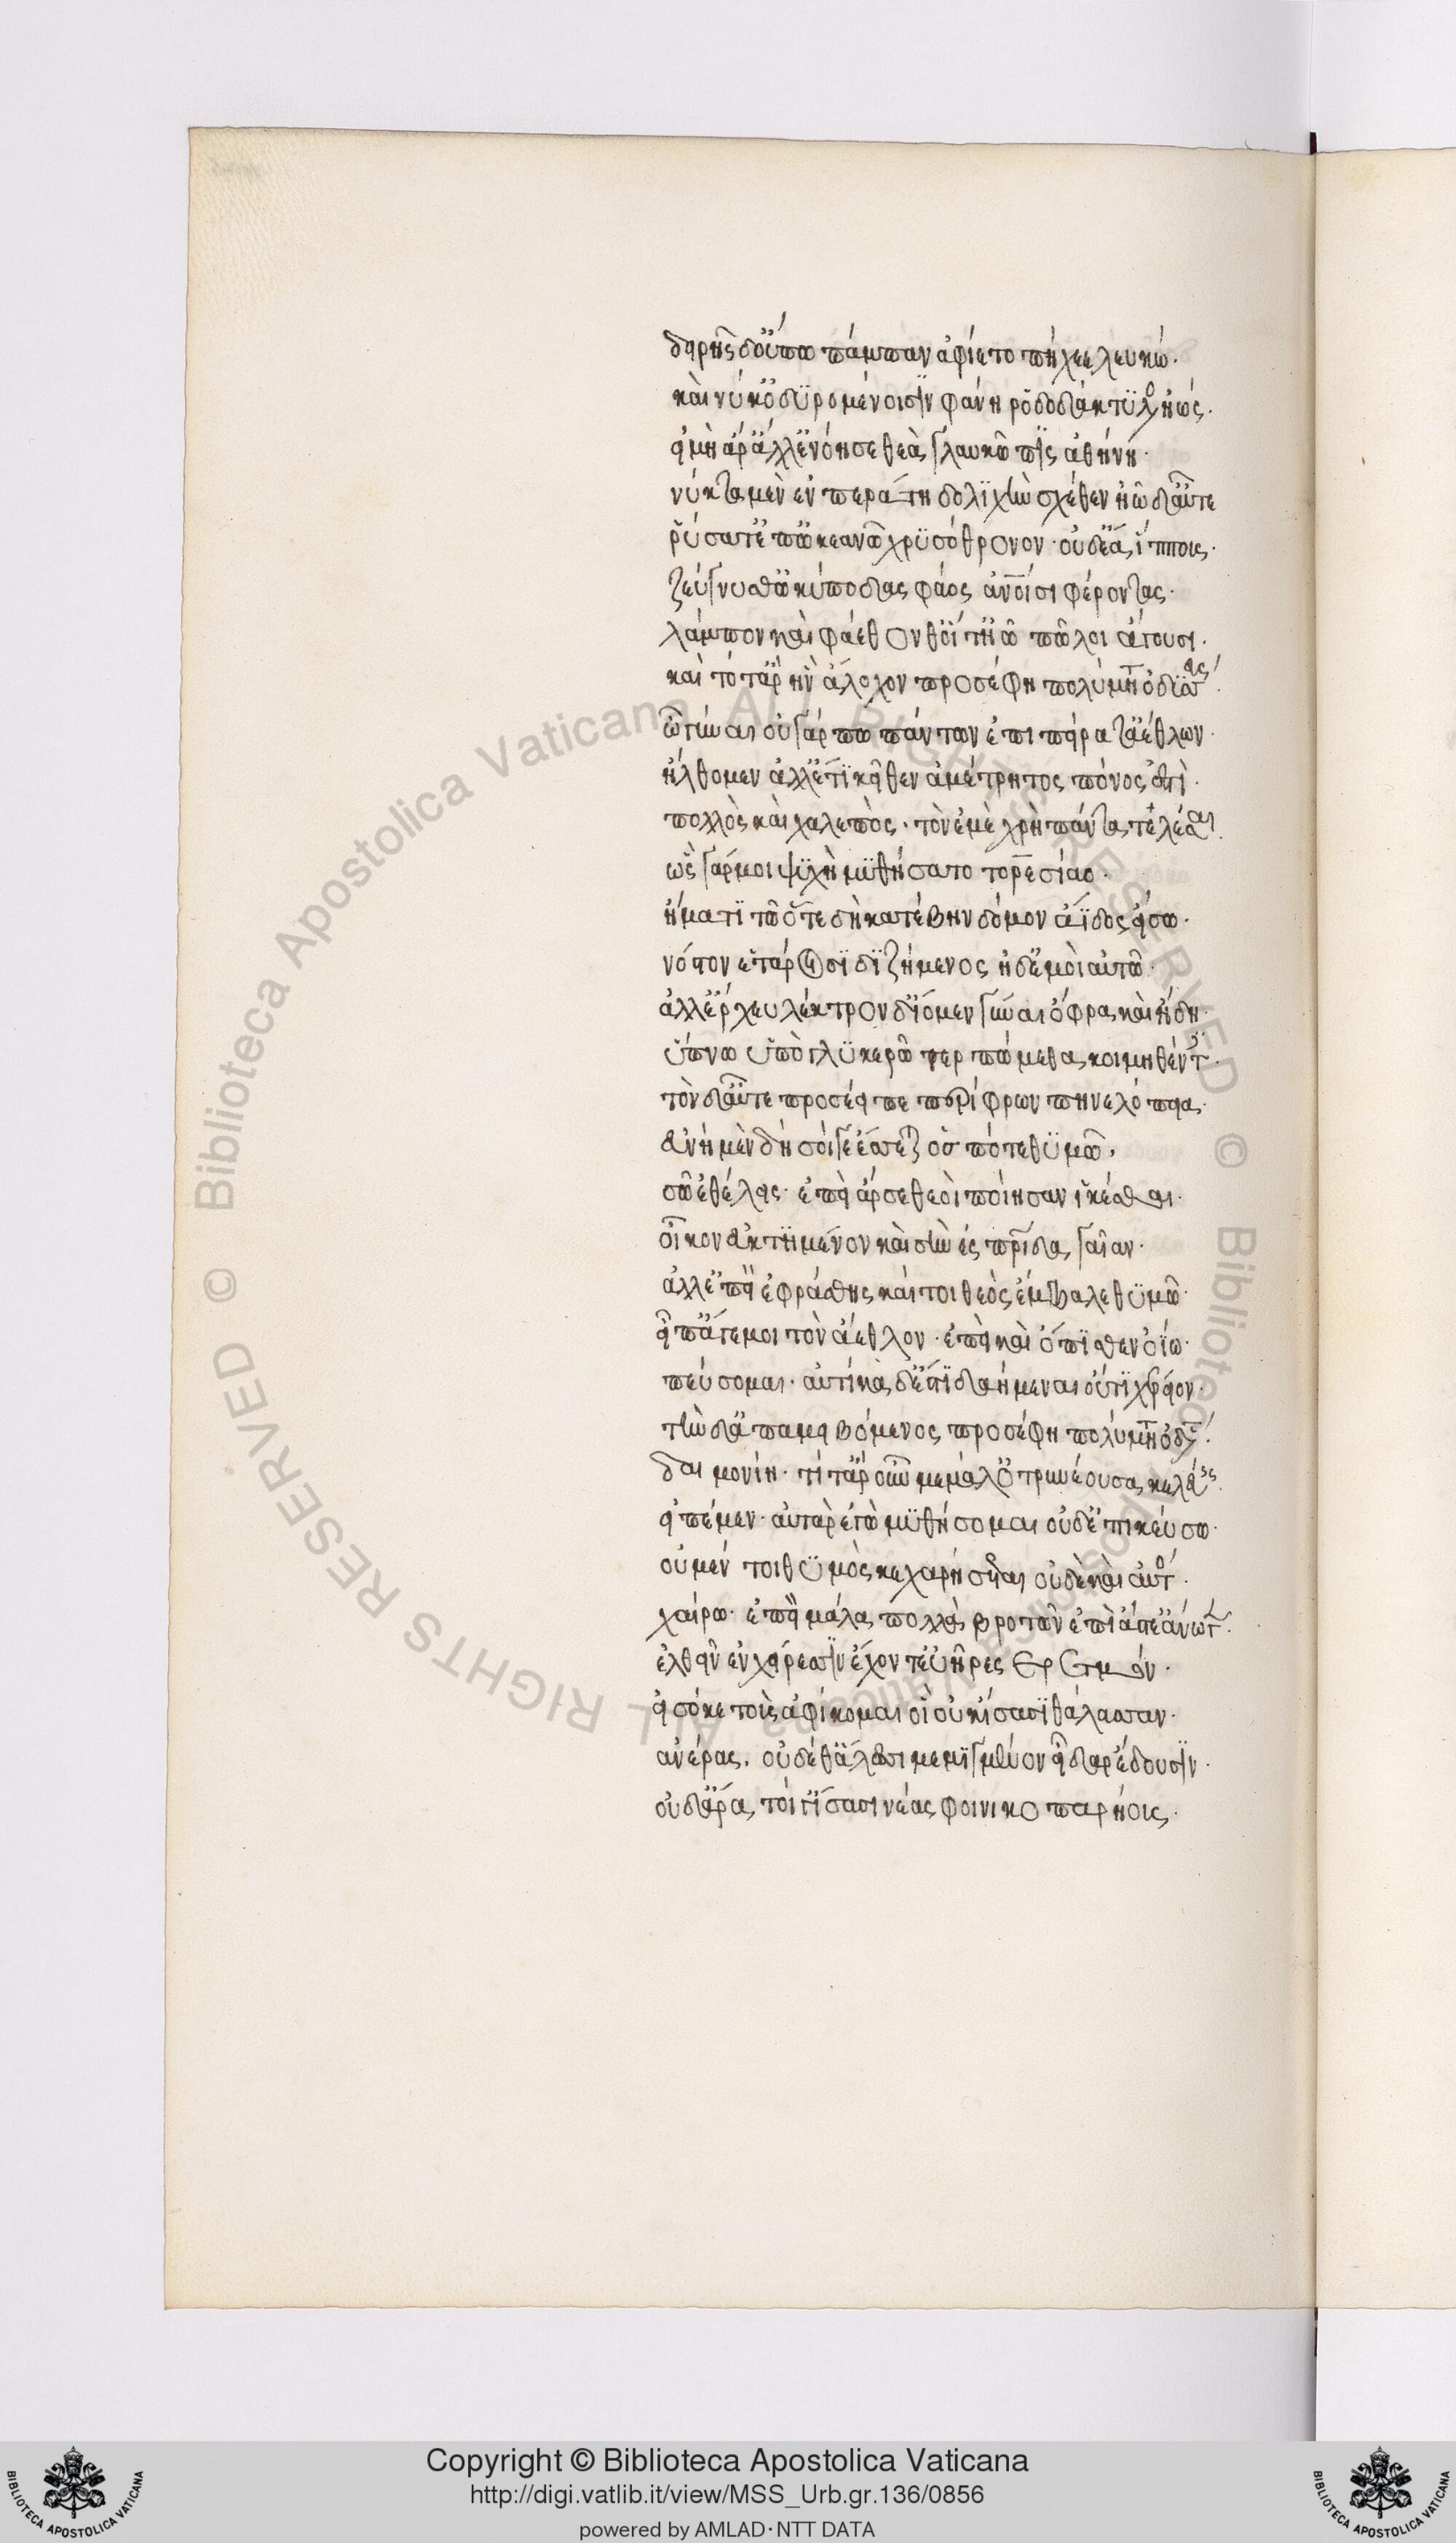 δειρῆς δ' οὔπω πάμπαν ἀφίετο πήχεε λευκώ.
καί νύ κ' ὀδϋρομένοισϊν φάνη ῥοδοδάκτϋλος ἠώς.
εἰ μὴ ἄρ' ἄλλ' ἐνόησε θεὰ γλαυκῶπϊς ἀθήνη.
νύκτα μὲν ἐν περάτη δολϊχὴν σχέθεν ἠῶ δ' αὖτε
ῥύσατ' ἐπ' ὠκεανῶ χρϋσόθρονον· οὐδ' ἔα ἵππους.
ζεύγνυσθ' ὠκύποδας φάος ἀνοισι φέροντας.
λάμπον καὶ φαέθονθ' οἵ τ' ἠῶ πῶλοι ἄγουσι.
καὶ τότ' ἄρ' ἣν ἄλοχον προσέφη πολύμητις ὀδϋσσεύς.
ὦ γύναι οὐ γάρ πω πάντων ἐπι πείρατ' ἀέθλων.
ἤλθομεν ἀλλ' ἔτ' ὄπϊσθεν ἀμέτρητος πόνος ἐστὶ.
πολλὸς καὶ χαλεπὸς. τὸν ἐμὲ χρὴ πάντα τελέσσαι.
ὣς γάρ μοι ψϋχὴ μϋθήσατο τειρεσίαο.
ἤματϊ τῶ ὅτε δὴ κατέβην δόμον ἄϊδος εἴσω.
νόστον ἑταίροισϊ διζήμενος ἠδ' ἐμοὶ αὐτῶ.
ἀλλ' ἔρχευ λέκτρονδ' ἴομεν γύναι ὄφρα καὶ ἤδη.
ὕπνω ὕπο γλϋκερῶ τερπώμεθα κοιμηθέντε.
τὸν δ' αὖτε προσέειπε περίφρων πηνελόπεια.
εὐνὴ μὲν δὴ σοί γε ἔσσεται ὁππότε θϋμῶ.
σῶ ἐθέλεις· ἐπεὶ ἄρ σε θεοὶ ποίησαν ἱκέσθαι.
οἶκον ἐϋκτίμενον καὶ σὴν ἐς πατρίδα γαῖαν.
ἀλλ' ἐπεὶ ἐφράσθης καί τοι θεὸς ἔμβαλε θϋμῶ.
εἴπ' ἄγε μοι τὸν ἄεθλον· ἐπεὶ καὶ ὄπϊσθεν ὀΐω.
πεύσομαι· αὐτίκα δ' ἐστὶ δαήμεναι οὔτϊ χέρειον.
τὴν δ' ἀπαμειβόμενος προσέφη πολύμητις ὀδυσσεύς.
δαιμονίη· τί τ' ἄρ' οὖν με μάλ' ὀτρυνέουσα κελεύεις.
εἰπέμεν· αὐτὰρ ἐγὼ μϋθήσομαι οὐδ' ἐπικεύσω.
οὐ μέν τοι θϋμὸς κεχαρήσεται οὐδὲ καὶ αὐτὸς.
χαίρω· ἐπεὶ μάλα πολλὰ βροτῶν ἐπὶ ἄστε' ἄνωγεν.
ἐλθεῖν ἐν χείρεσσϊν ἔχοντ' εὐῆρες ἐρετμόν.
εἰσόκε τοὺς ἀφίκωμαι οἳ οὐκ ἴσασϊ θάλασσαν.
ἀνέρας. οὐδέ θ' ἅλεσσι μεμϊγμένον εἶδαρ ἔδουσϊν.
οὐδ' ἄρα τοί γ' ἴσασι νέας φοινικοπαρήους.
Copyright © Biblioteca Apostolica Vaticana
http://digi.vatlib.it/view/MSS_Urb.gr.136/0856
powered by AMLAD·NTT DATA